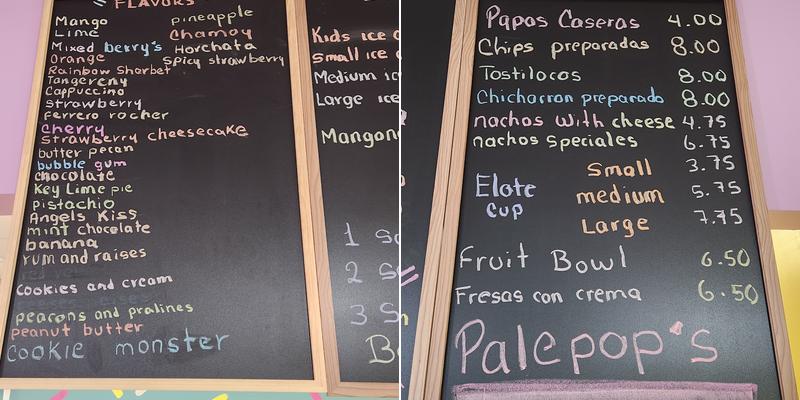 FLAVORS
Mango
Lime
Mixed berry's
Orange
Rainbow Sharbet
Tangereny
Cappuccino
strawberry
ferrero rocher
cherry
strawberry cheesecake
butter pecan
bubble gum
chocolate
Key Lime pie
Pistachio
Angels Kiss
mint chocolate
banana
rum and raises
cookies and cream
peacons and pralines
peanut butter
cookie monster
pineapple
Chamoy
Horchata
Spicy strawberry
Kids ice
Small ice
Medium ice
Large ice
Mangon
1 Sc
2 S
3 S
B
Papas Caseras 4.00
Chips preparadas 8.00
Tostilocos 8.00
Chicharron preparado 8.00
nachos with cheese 4.75
nachos speciales 6.75
Elote cup
Small 3.75
medium 5.75
Large 7.75
Fruit Bowl 6.50
Fresas con crema 6.50
Palepop's